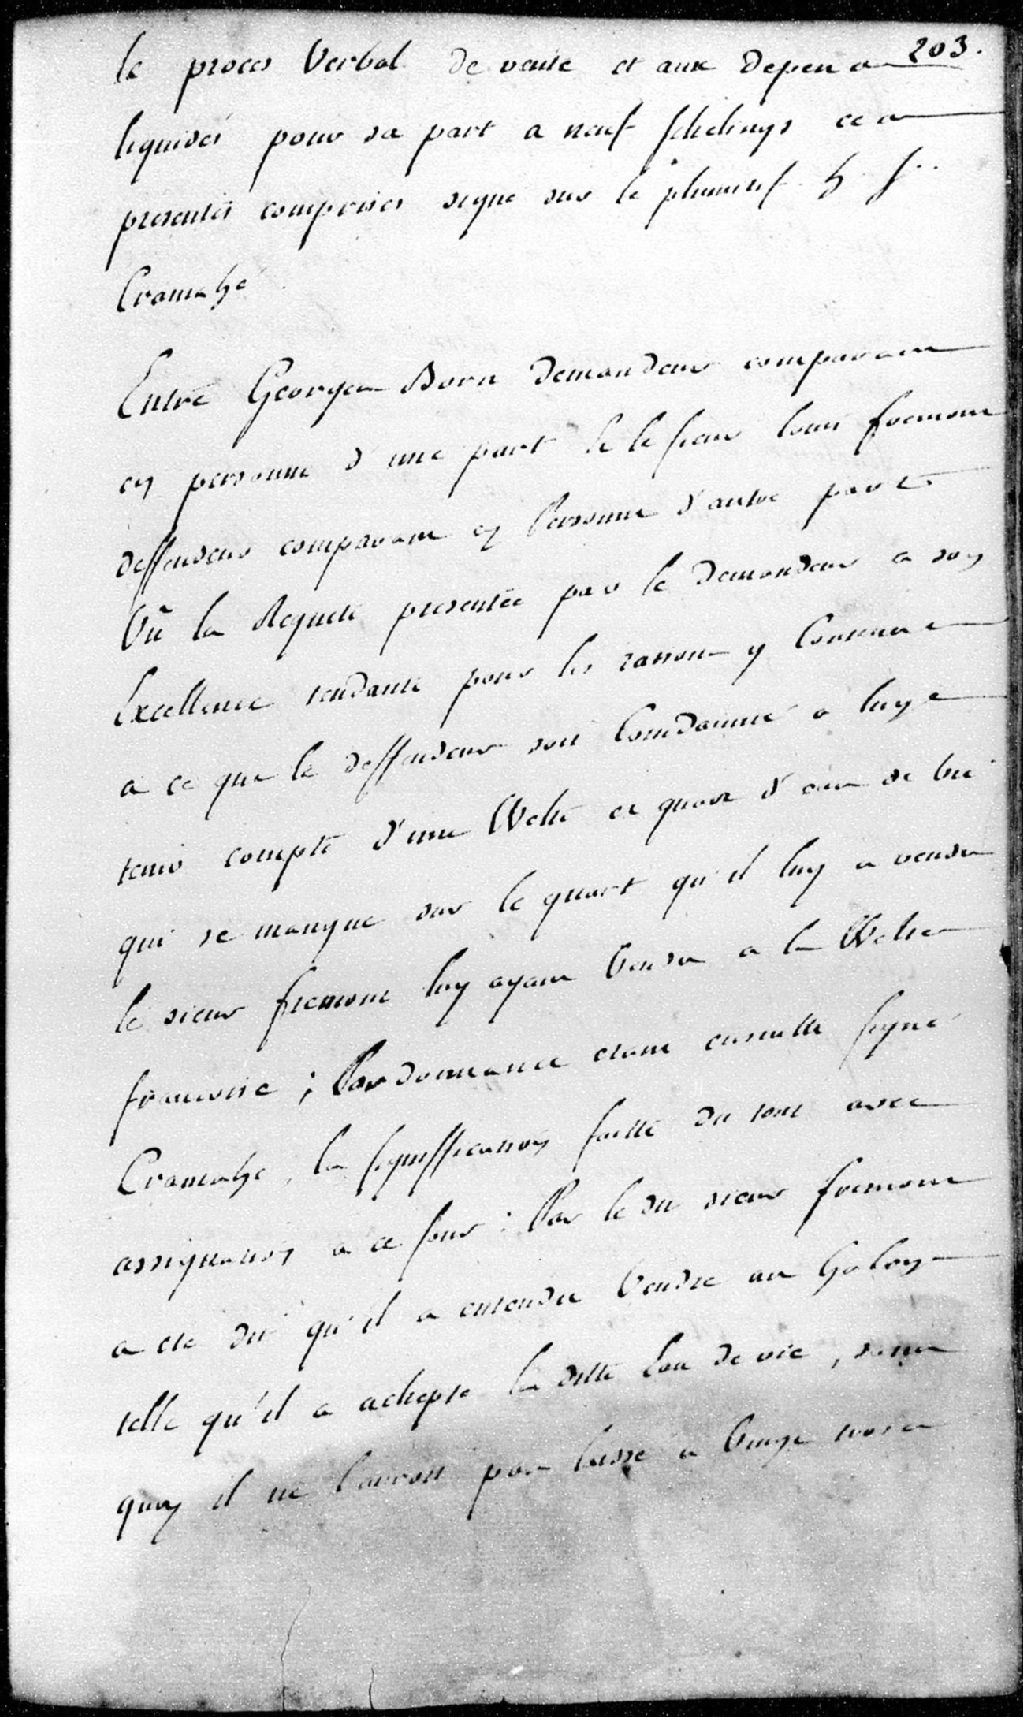 203.
le proces Verbal de vente et aux depens
liquidés pour sa part a neuf schelings ces
presentes comprises signé sur le plumitif h. f..
Cramahé
Entre Georges Born demandeur comparant
en personne d'une part & le sieur louis fremont
deffendeur comparant en Personne d'autre part
Vû la Requete presentée par le demandeur a son
Excellence tendante pour les raisons y Contenues
a ce que le deffendeur soit Condamné a luy
tenir compte d'une Welte et quart d'eau de vie
qui se manque sur le quart qu'il luy a vendu
le sieur fremont luy ayant Vendu a la Welte
francoise ; L'ordonnance etant ensuitte signé
Cramahé, la signiffication faitte du tout avec
assignation a ce jour : Par le dit sieur fremont
a eté dit qu'il a entendu Vendre au Galon
telle qu'il a achepté la ditte Eau de vie, sans
quoy il ne l'auroit pas laissé a Vingt trois